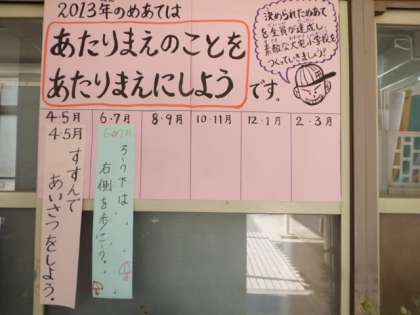 2013年のめあては
あたりまえのことを
あたりまえにしよう
です。
決められためあて
を全員が達成し、
素敵な大宅小学校を
つくっていきましょう!
4・5月
6・7月
8・9月
10・11月
12・1月
2・3月
4・5月
すすんで
あいさつをしよう。
6・7月
ろうかは
右側を歩こう。